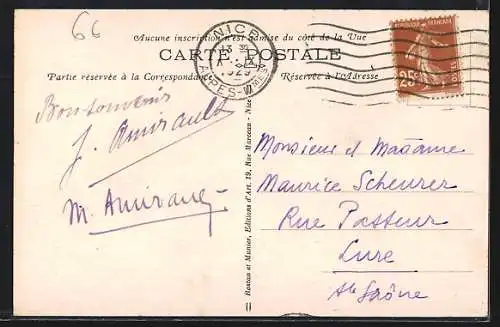 66
Aucune inscription n'est admise du côté de la Vue
CARTE POSTALE
Partie réservée à la Correspondance
Réservée à l'Adresse
NICE
1929
ALPES-MMES
RÉPUBLIQUE FRANÇAISE
25c
POSTES
Bon souvenir
J. Amirault
M. Amirault
Rostan et Munier, Editions d'Art, 19, Rue Marceau - Nice
Monsieur et Madame
Maurice Scheurer
Rue Pasteur
Lure
Hte Saône